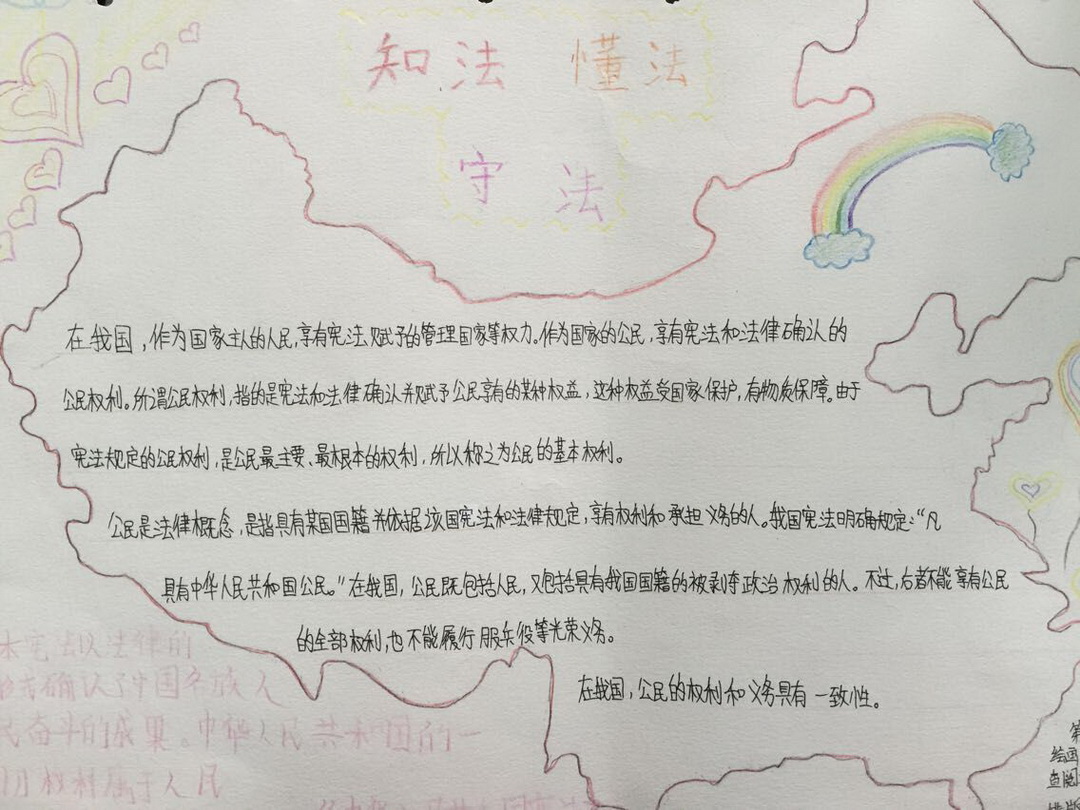 知法 懂法
守法
在我国,作为国家主人的人民,享有宪法赋予的管理国家等权力。作为国家的公民,享有宪法和法律确认的
公民权利。所谓公民权利,指的是宪法和法律确认并赋予公民享有的某种权益,这种权益受国家保护,有物质保障。由于
宪法规定的公民权利,是公民最主要、最根本的权利,所以称之为公民的基本权利。
公民是法律概念,是指具有某国国籍并依据该国宪法和法律规定,享有权利和承担义务的人。我国宪法明确规定:“凡
具有中华人民共和国公民。”在我国,公民既包括人民,又包括具有我国国籍的被剥夺政治权利的人。不过,后者不能享有公民
的全部权利,也不能履行服兵役等光荣义务。
在我国,公民的权利和义务具有一致性。
本宪法以法律的
确认了中国各族人
民奋斗的成果。中华人民共和国的一
切权利属于人民
第
绘画
查阅